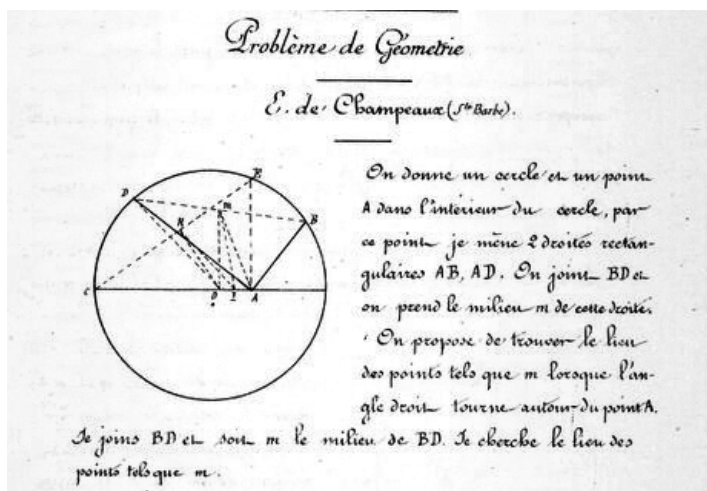 Problème de Géometrie
E. de Champeaux (Ste Barbe).
On donne un cercle et un point
A dans l'interieur du cercle, par
ce point je mène 2 droites rectan-
gulaires AB, AD. On joint BD et
on prend le milieu m de cette droite.
On propose de trouver le lieu
des points tels que m lorsque l'an-
gle droit tourne autour du point A.
Je joins BD et soit m le milieu de BD. Je cherche le lieu des
points tels que m.
E
D
m
B
C
I
A